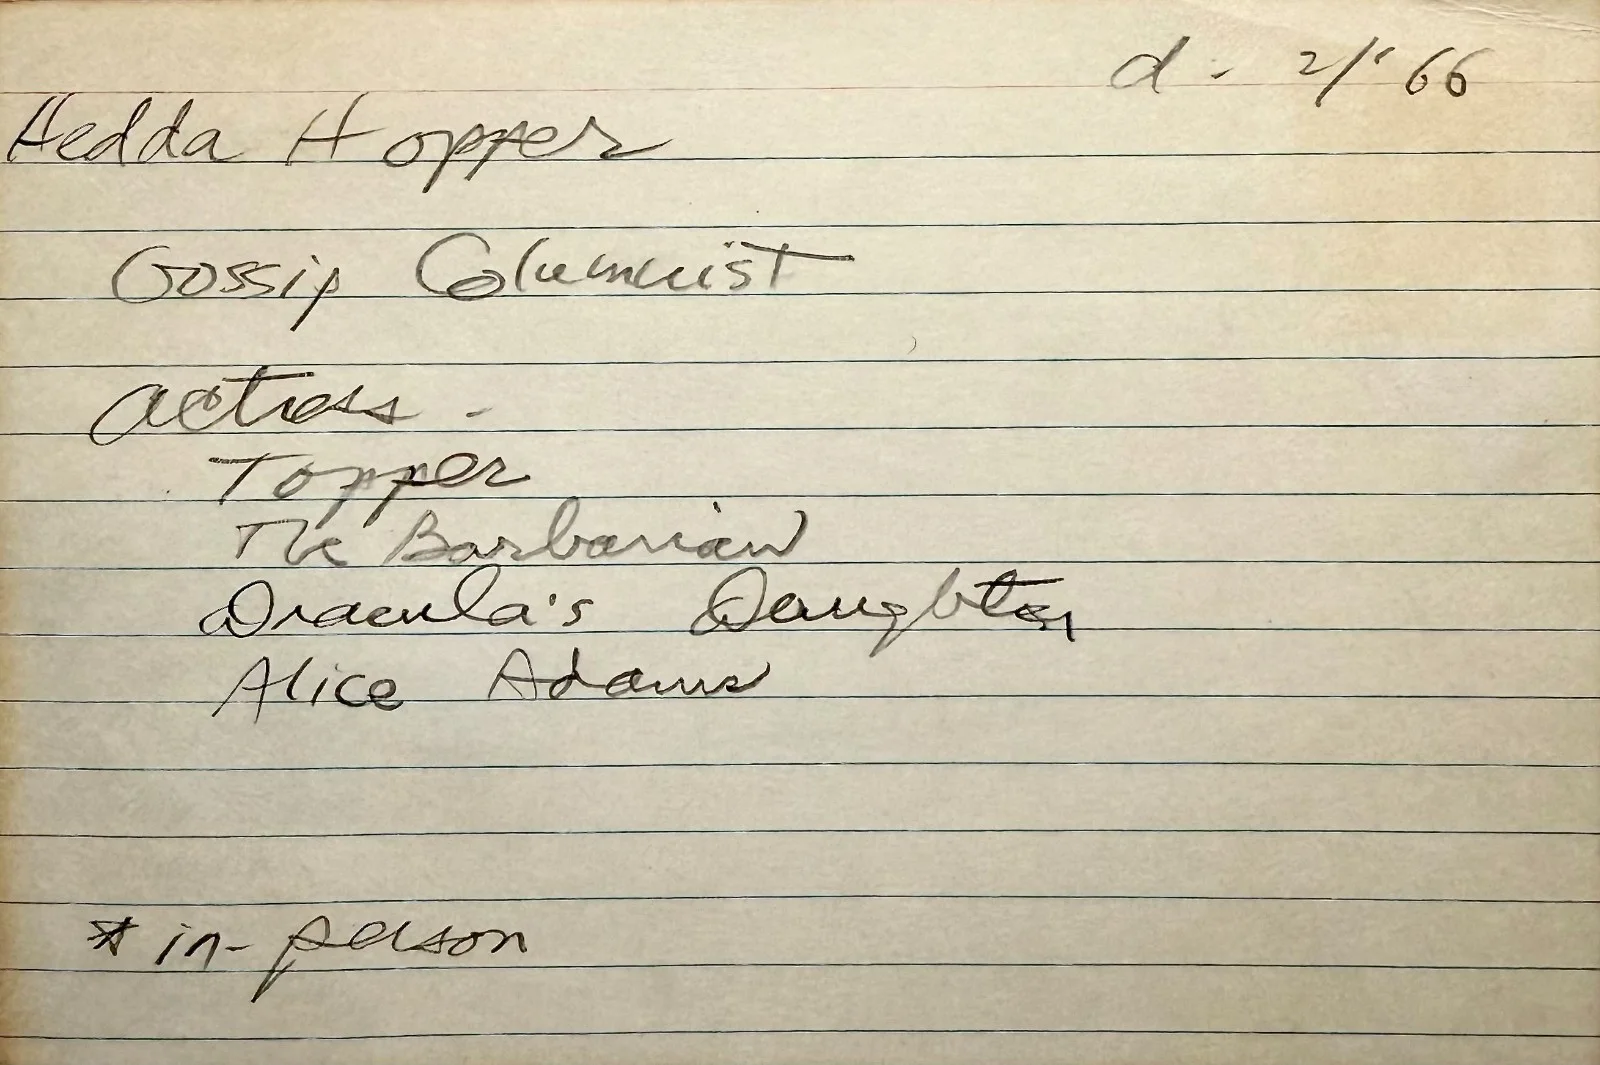 d - 2/'66
Hedda Hopper
Gossip Columnist
actress -
Topper
The Barbarian
Dracula's Daughter
Alice Adams
* in-person